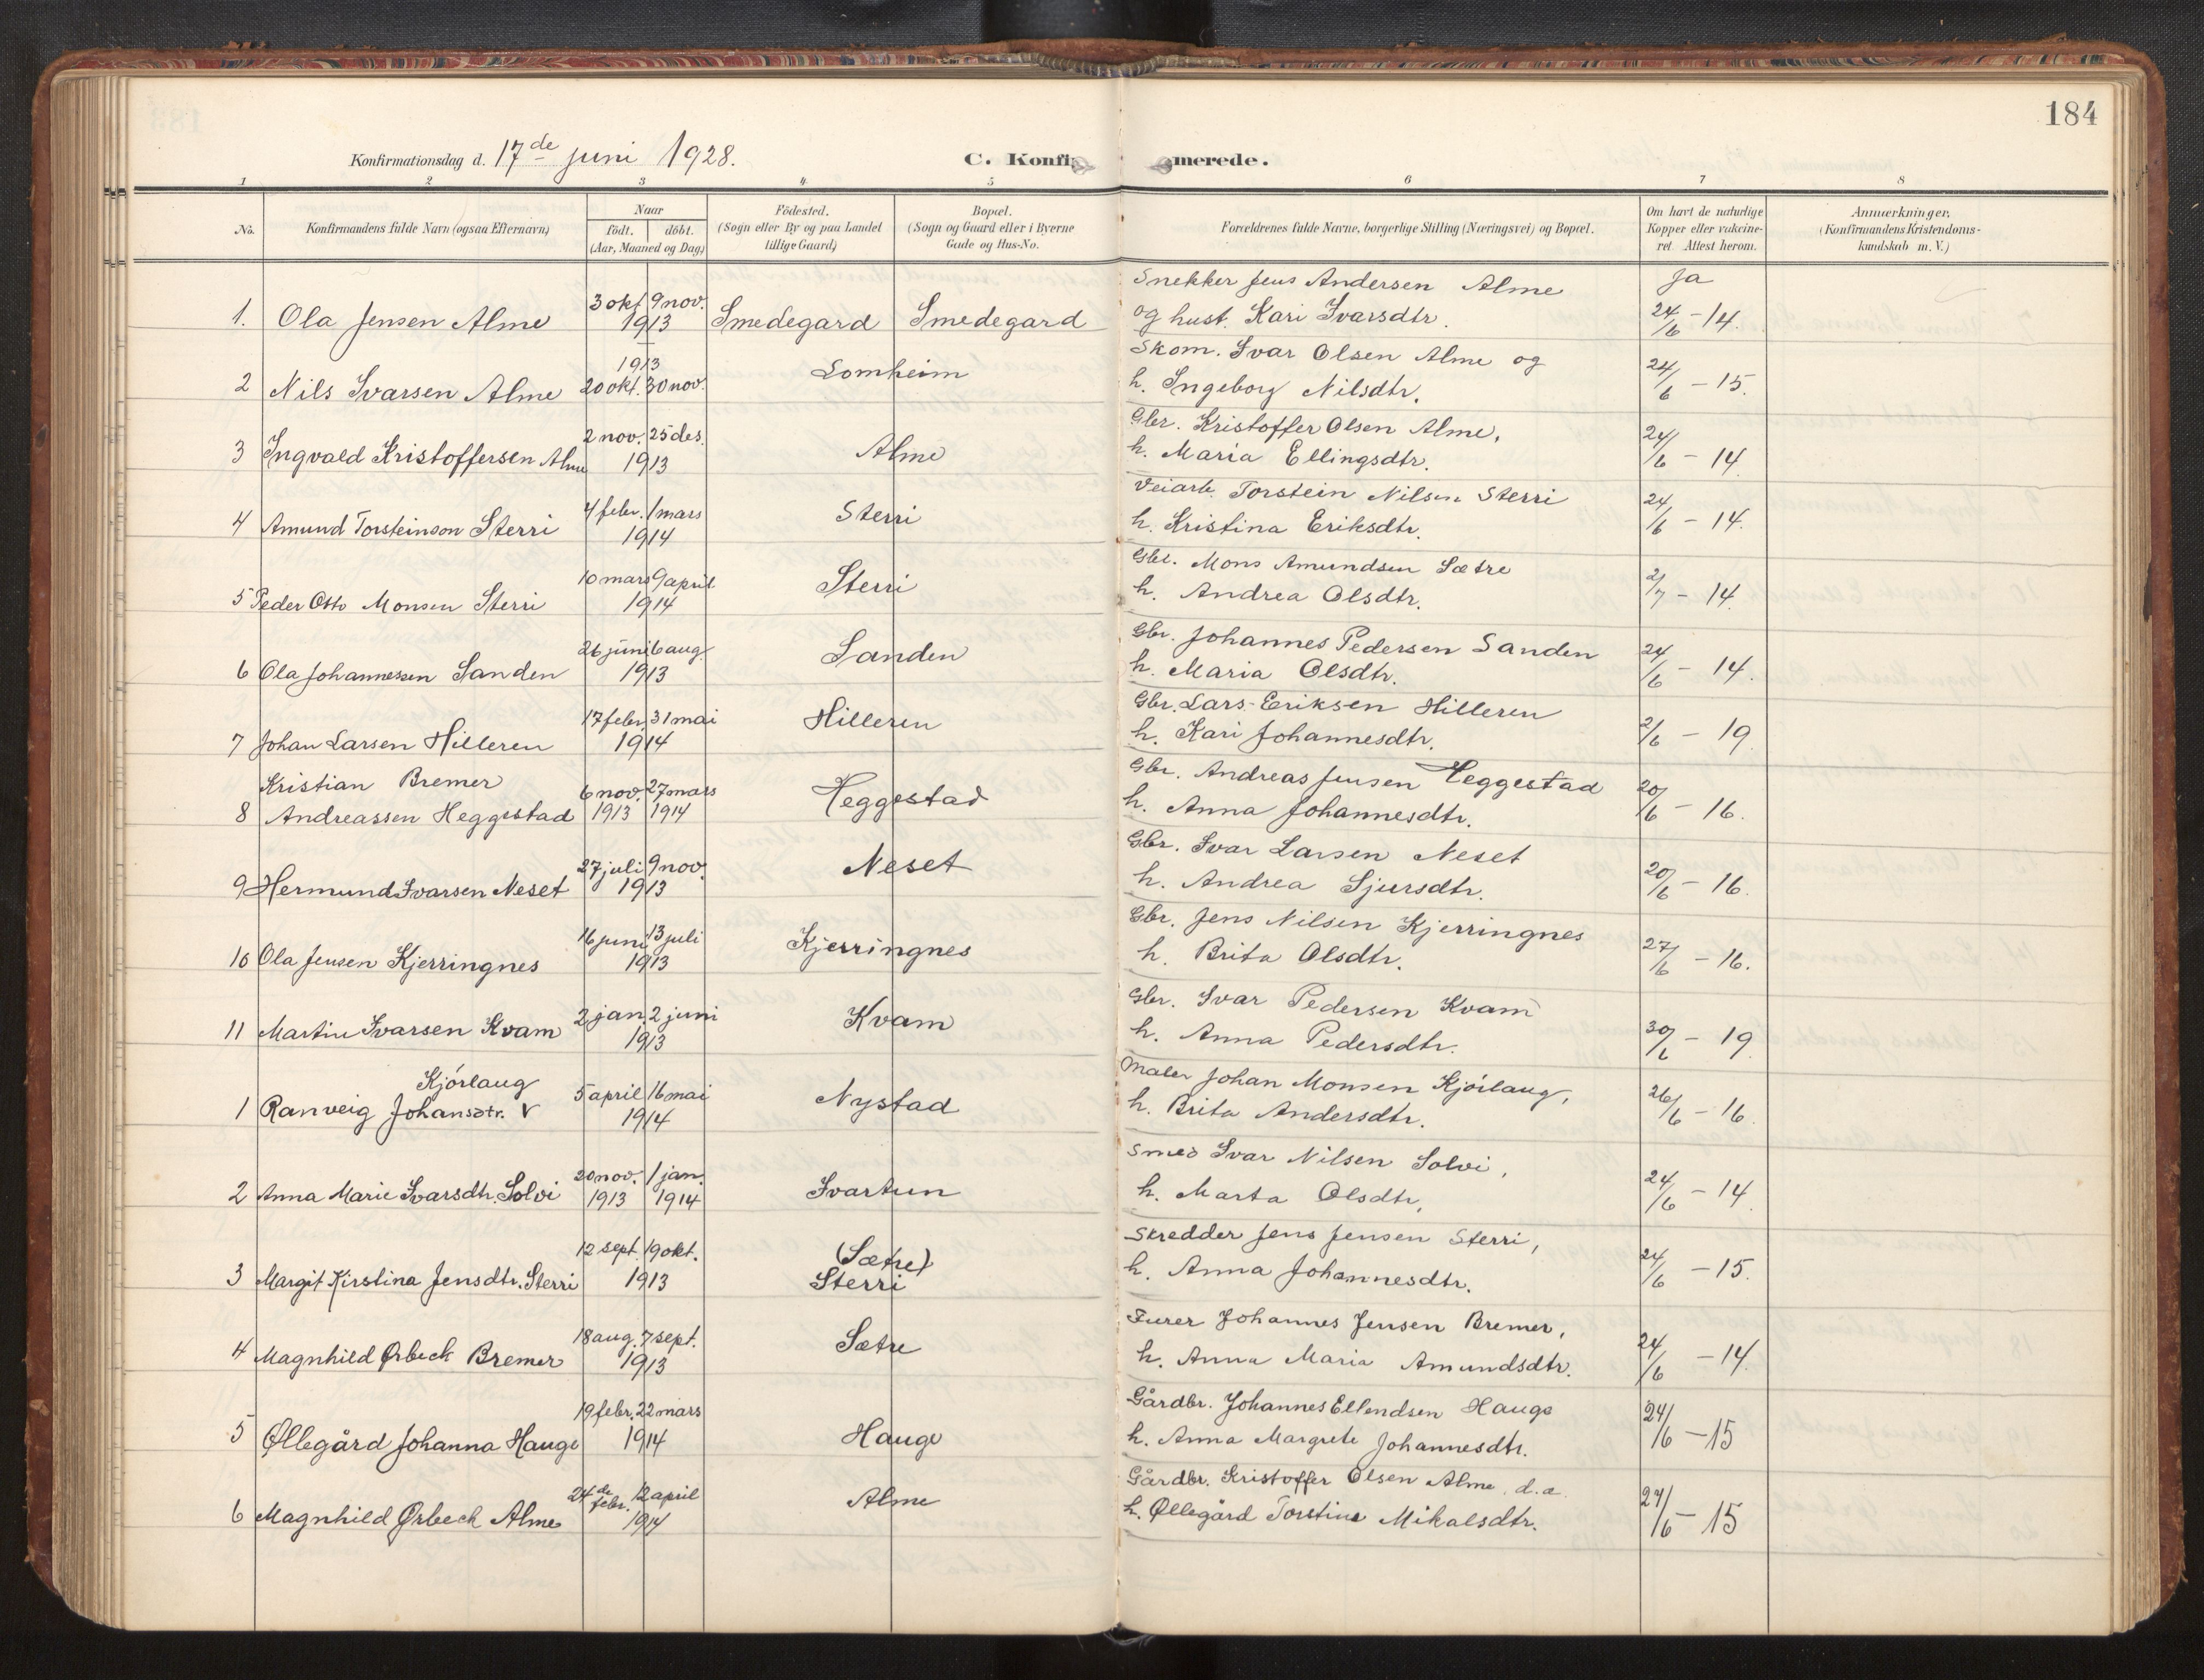 184
Konfirmationsdag d. 17de juni 1928.
C. Konfirmerede.
1 2 3 4 5 6 7 8
No.
Konfirmandens fulde Navn (ogsaa Efternavn)
Naar
födt. döbt.
(Aar, Maaned og Dag)
Födested.
(Sogn eller By og paa Landet
tillige Gaard)
Bopæl.
(Sogn og Gaard eller i Byerne
Gade og Hus-No.
Forældrenes fulde Navne, borgerlige Stilling (Næringsvei) og Bopæl.
Om havt de naturlige
Kopper eller vakcine-
ret. Attest herom.
Anmærkninger,
(Konfirmandens Kristendoms-
kundskab m. V.)
1. Ola Jensen Alme 3 okt. 9 nov. 1913 Smedegard Smedegard
Snekker Jens Andersen Alme
og hust. Kari Ivarsdtr.
Ja
24/6 - 14.
2 Nils Ivarsen Alme 1913 20 okt. 30 nov. Lomheim
Skom. Ivar Olsen Alme og
h. Ingeborg Nilsdtr.
24/6 - 15.
3 Ingvald Kristoffersen Alme 2 nov. 25 des. 1913 Alme
Gbr. Kristoffer Olsen Alme,
h. Maria Ellingsdtr.
24/6 - 14
4 Amund Torsteinson Sterri 4 febr. 1 mars 1914 Sterri
Veiarb. Torstein Nilsen Sterri
h. Kristina Eriksdtr.
24/6 - 14.
5 Peder Otto Monsen Sterri 10 mars 9 april 1914 Sterri
Gbr. Mons Amundsen Sætre
h. Andrea Olsdtr.
2/7 - 14.
6 Ola Johannessen Sanden 26 juni 6 aug. 1913 Sanden
Gbr. Johannes Pedersen Sanden
h. Maria Olsdtr.
24/6 - 14.
7 Johan Larsen Hilleren 17 febr. 31 mai 1914 Hilleren
Gbr. Lars Eriksen Hilleren
h. Kari Johannesdtr.
2/6 - 19
Kristian Bremer
8 Andreassen Heggestad 6 nov. 1913 27 mars 1914 Heggestad
Gbr. Andreas Jensen Heggestad
h. Anna Johannesdtr.
20/6 - 16.
9 Hermund Ivarsen Neset 27 juli 9 nov. 1913 Neset
Gbr. Ivar Larsen Neset
h. Andrea Sjursdtr.
20/6 - 16.
10 Ola Jensen Kjerringnes 16 juni 13 juli 1913 Kjerringnes
Gbr. Jens Nilsen Kjerringnes
h. Brita Olsdtr.
27/6 - 16.
11 Martin Ivarsen Kvam 2 jan. 2 juni 1913 Kvam
Gbr. Ivar Pedersen Kvam
h. Anna Pedersdtr.
30/6 - 19
Kjörlaug
1 Ranveig Johansdtr. V 5 april 16 mai 1914 Nystad
Maler Johan Monsen Kjörlaug,
h. Brita Andersdtr.
26/6 - 16
2 Anna Marie Ivarsdtr. Solvi 20 nov. 1913 1 jan. 1914 Ivartun
Smed Ivar Nilsen Solvi,
h. Marta Olsdtr,
24/6 - 14
3 Margit Kirstina Jensdtr. Sterri 12 sept. 19 okt. 1913 (Sætre)
Sterri
Skredder Jens Jensen Sterri,
h. Anna Johannesdtr.
24/6 - 15.
4 Magnhild Ørbeck Bremer 18 aug. 7 sept. 1913 Sætre
Furer Johannes Jensen Bremer,
h. Anna Maria Amundsdtr.
24/6 - 14.
5 Øllegård Johanna Hauge 19 febr. 22 mars 1914 Hauge
Gårdbr. Johannes Ellendsen Hauge
h. Anna Margrete Johannesdtr.
24/6 - 15
6 Magnhild Ørbeck Alme 24de febr. 12 april 1914 Alme
Gårdbr. Kristoffer Olsen Alme. d.a.
h. Øllegård Torstine Mikalsdtr.
24/6 - 15